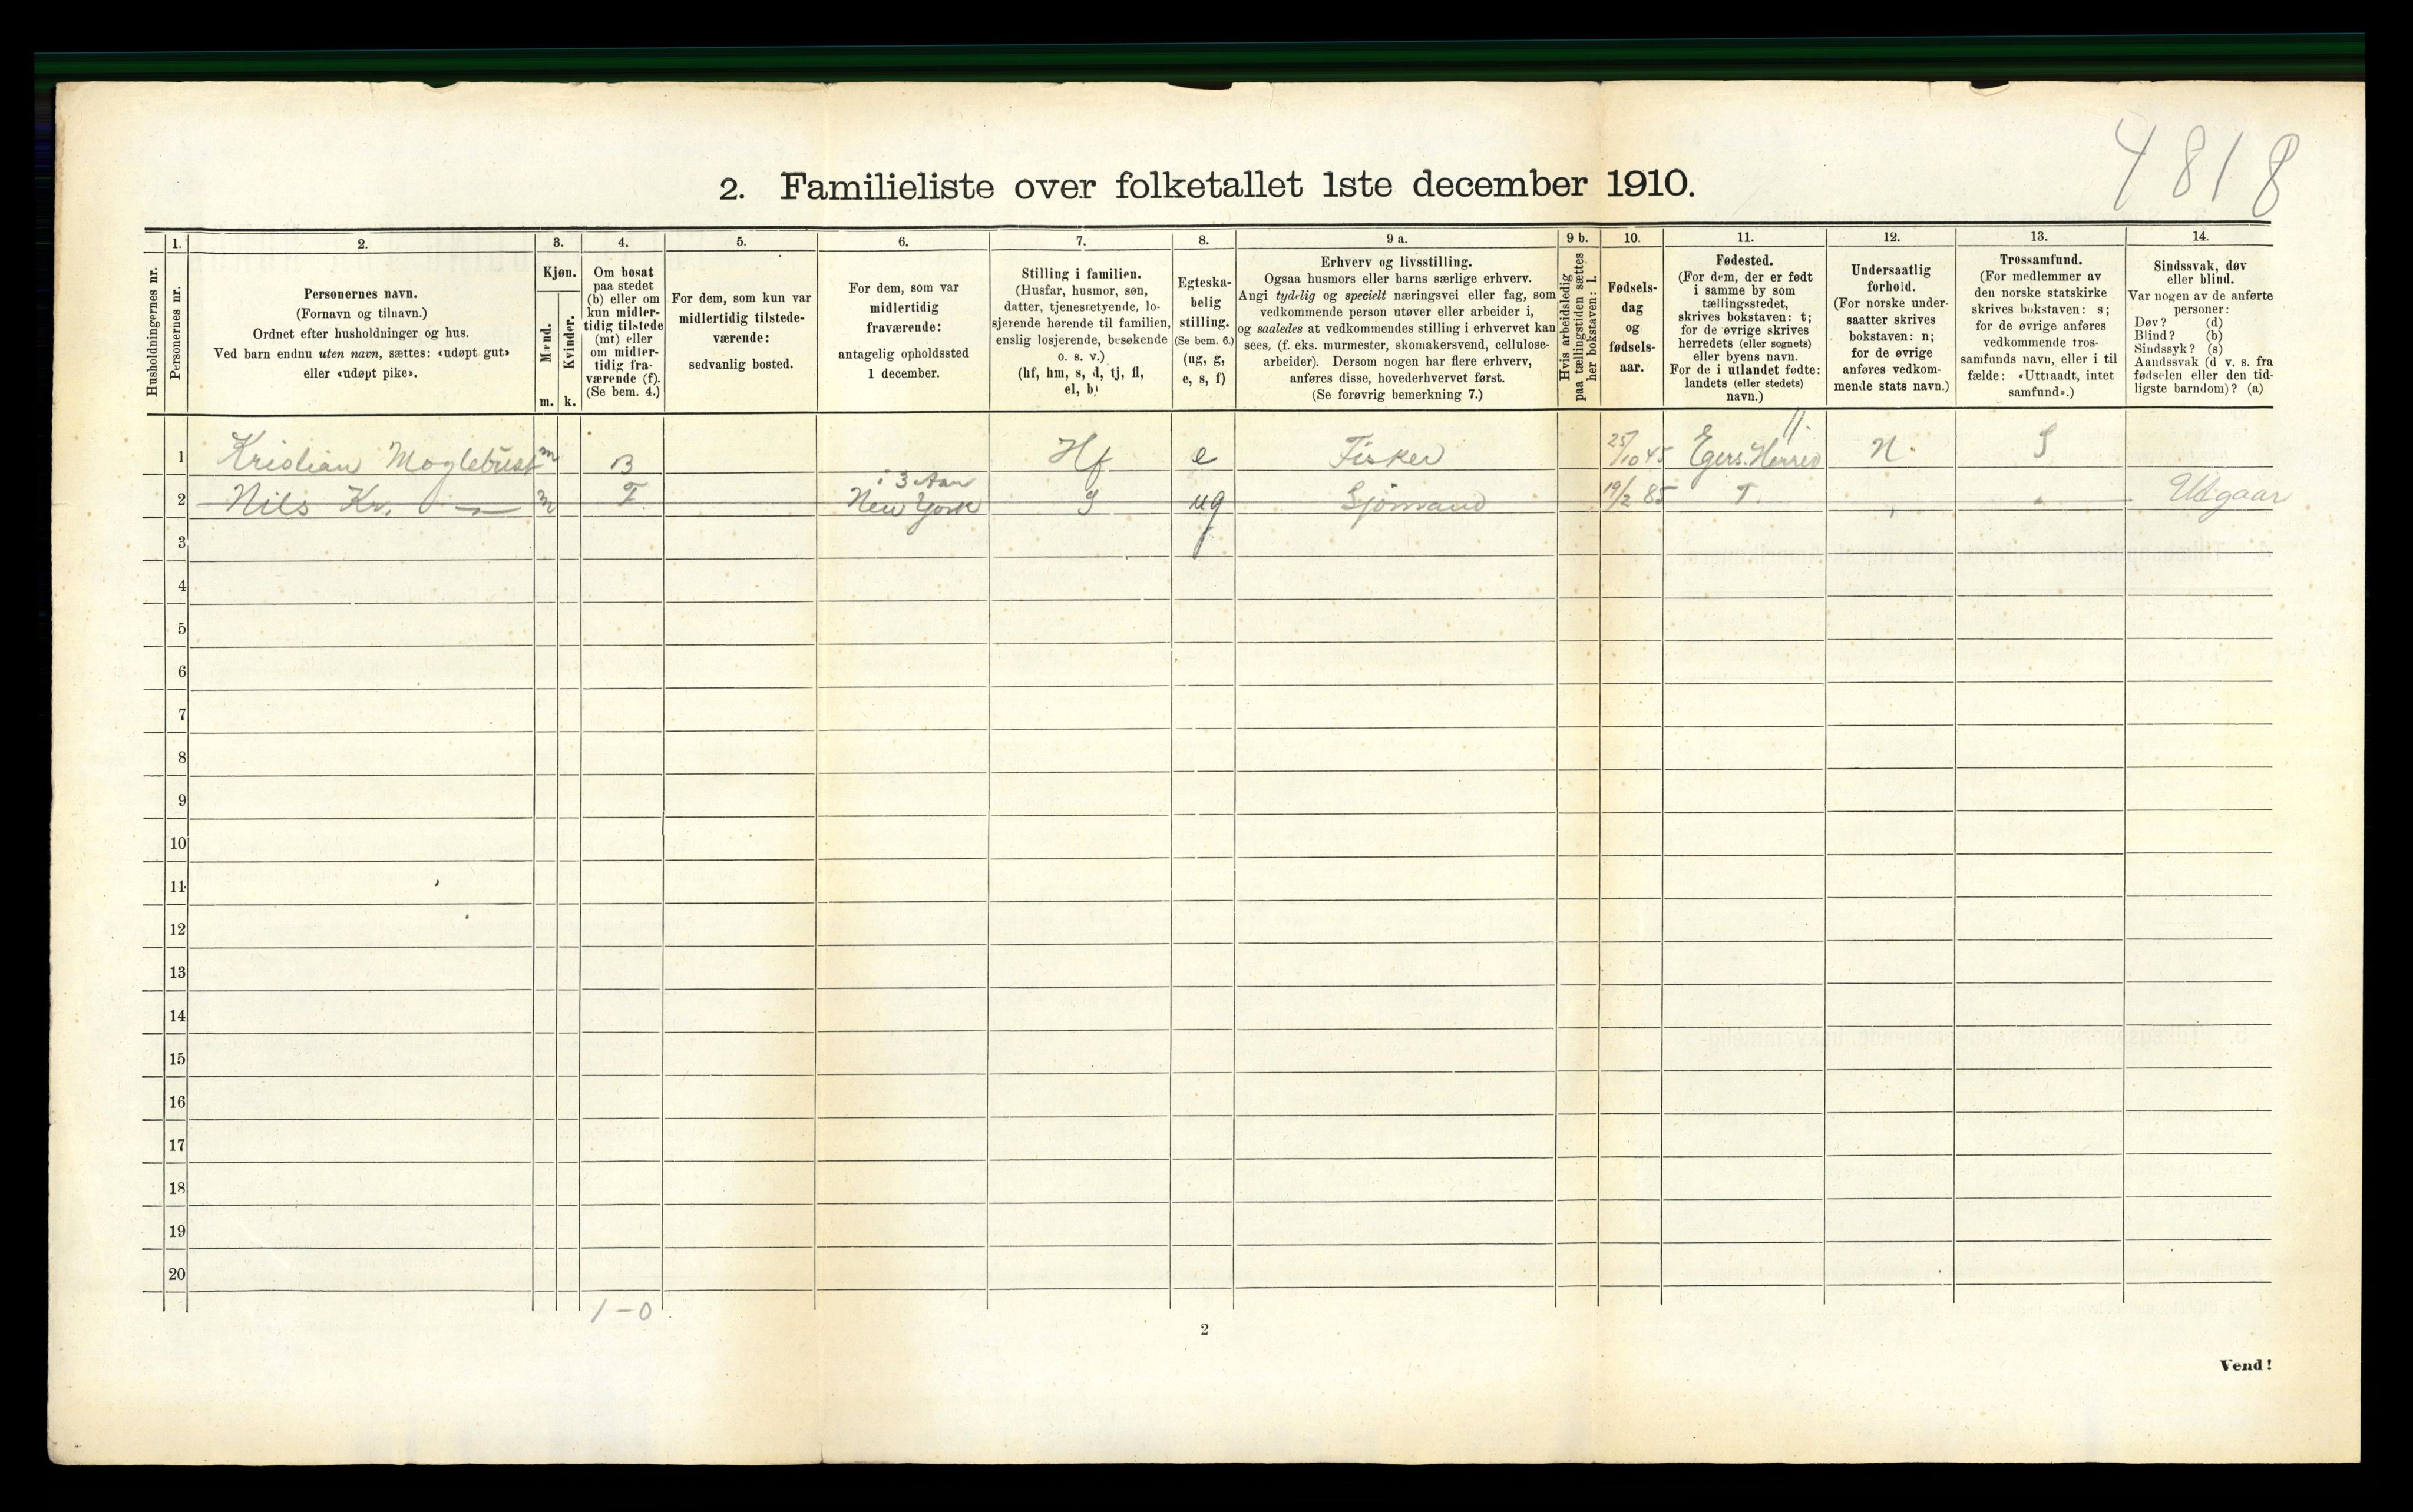 4818
2. Familieliste over folketallet 1ste december 1910.
Husholdningernes nr.
1.
Personernes nr.
2.
Personernes navn.
(Fornavn og tilnavn.)
Ordnet efter husholdninger og hus.
Ved barn endnu uten navn, sættes: «udøpt gut»
eller «udøpt pike».
3.
Kjøn.
Mænd.
m.
Kvinder.
k.
4.
Om bosat
paa stedet
(b) eller om
kun midler-
tidig tilstede
(mt) eller
om midler-
tidig fra-
værende (f).
(Se bem. 4.)
5.
For dem, som kun var
midlertidig tilstede-
værende:
sedvanlig bosted.
6.
For dem, som var
midlertidig
fraværende:
antagelig opholdssted
1 december.
7.
Stilling i familien.
(Husfar, husmor, søn,
datter, tjenestetyende, lo-
sjerende hørende til familien,
enslig losjerende, besøkende
o. s. v.)
(hf, hm, s, d, tj, fl,
el, b)
8.
Egteska-
belig
stilling.
(Se bem. 6.)
(ug, g,
e, s, f)
9 a.
Erhverv og livsstilling.
Ogsaa husmors eller barns særlige erhverv.
Angi tydelig og specielt næringsvei eller fag, som
vedkommende person utøver eller arbeider i,
og saaledes at vedkommendes stilling i erhvervet kan
sees, (f. eks. murmester, skomakersvend, cellulose-
arbeider). Dersom nogen har flere erhverv,
anføres disse, hovederhvervet først.
(Se forøvrig bemerkning 7.)
9 b.
Hvis arbeidsledig
paa tællingstiden sættes
her bokstaven: l.
10.
Fødsels-
dag
og
fødsels-
aar.
11.
Fødested.
(For dem, der er født
i samme by som
tællingsstedet,
skrives bokstaven: t;
for de øvrige skrives
herredets (eller sognets)
eller byens navn.
For de i utlandet fødte:
landets (eller stedets)
navn.)
12.
Undersaatlig
forhold.
(For norske under-
saatter skrives
bokstaven: n;
for de øvrige
anføres vedkom-
mende stats navn.)
13.
Trossamfund.
(For medlemmer av
den norske statskirke
skrives bokstaven: s;
for de øvrige anføres
vedkommende tros-
samfunds navn, eller i til
fælde: «Uttraadt, intet
samfund».)
14.
Sindssvak, døv
eller blind.
Var nogen av de anførte
personer:
Døv? (d)
Blind? (b)
Sindssyk? (s)
Aandssvak (d v. s. fra
fødselen eller den tid-
ligste barndom)? (a)
1 Kristian Moglebust m B Hf e Fisker 25/10 45 Egers. Herred 11. N. S
2 Nils Kr. — m F i 3 Aar New York S ug Sjømand 19/2 85 T. " " Udgaar
3
4
5
6
7
8
9
10
11
12
13
14
15
16
17
18
19
20
1 - 0
2
Vend!